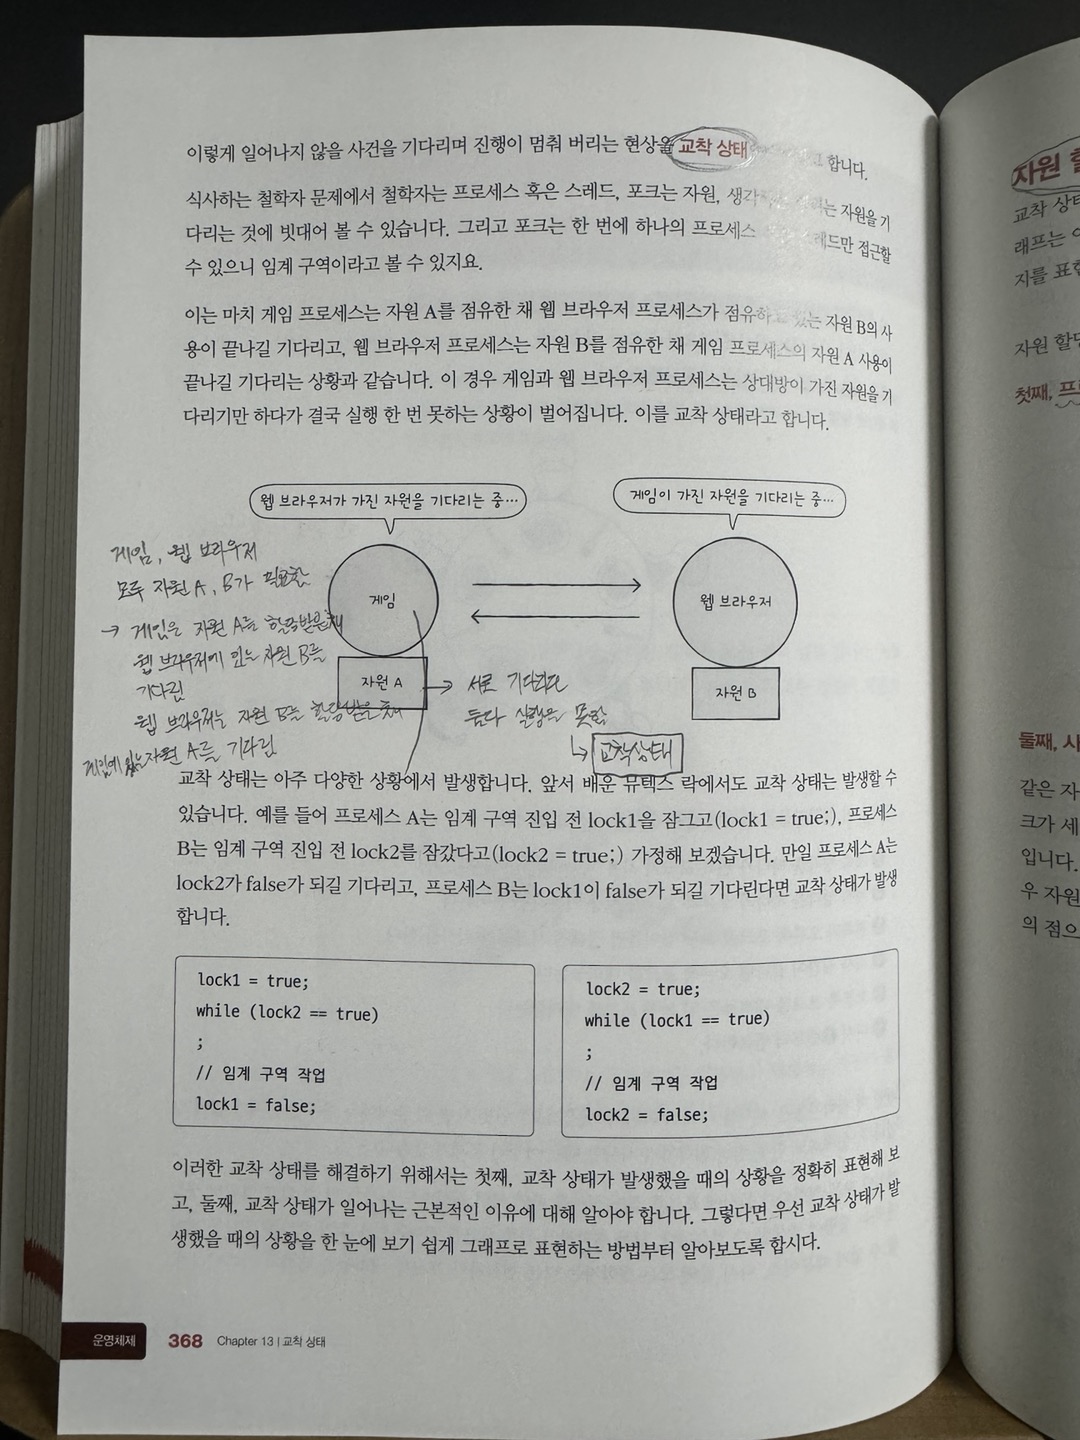 이렇게 일어나지 않을 사건을 기다리며 진행이 멈춰 버리는 현상을 교착 상태 합니다.
식사하는 철학자 문제에서 철학자는 프로세스 혹은 스레드, 포크는 자원, 자원을 기
다리는 것에 빗대어 볼 수 있습니다. 그리고 포크는 한 번에 하나의 프로세스 접근할
수 있으니 임계 구역이라고 볼 수 있지요.
이는 마치 게임 프로세스는 자원 A를 점유한 채 웹 브라우저 프로세스가 점유하고 있는 자원 B의 사
용이 끝나길 기다리고, 웹 브라우저 프로세스는 자원 B를 점유한 채 게임 프로세스의 자원 A 사용이
끝나길 기다리는 상황과 같습니다. 이 경우 게임과 웹 브라우저 프로세스는 상대방이 가진 자원을 기
다리기만 하다가 결국 실행 한 번 못하는 상황이 벌어집니다. 이를 교착 상태라고 합니다.
웹 브라우저가 가진 자원을 기다리는 중…
게임이 가진 자원을 기다리는 중…
게임
웹 브라우저
자원 A
자원 B
게임, 웹 브라우저
모두 자원 A, B가 필요함
→ 게임은 자원 A를 할당받은 채
웹 브라우저에 있는 자원 B를
기다림
웹 브라우저는 자원 B를 할당받은 채
게임에 있는 자원 A를 기다림
→ 서로 기다리다
둘다 실행을 못함
↳ 교착상태
교착 상태는 아주 다양한 상황에서 발생합니다. 앞서 배운 뮤텍스 락에서도 교착 상태는 발생할 수
있습니다. 예를 들어 프로세스 A는 임계 구역 진입 전 lock1을 잠그고(lock1 = true;), 프로세스
B는 임계 구역 진입 전 lock2를 잠갔다고(lock2 = true;) 가정해 보겠습니다. 만일 프로세스 A는
lock2가 false가 되길 기다리고, 프로세스 B는 lock1이 false가 되길 기다린다면 교착 상태가 발생
합니다.
lock1 = true;
while (lock2 == true)
;
// 임계 구역 작업
lock1 = false;
lock2 = true;
while (lock1 == true)
;
// 임계 구역 작업
lock2 = false;
이러한 교착 상태를 해결하기 위해서는 첫째, 교착 상태가 발생했을 때의 상황을 정확히 표현해 보
고, 둘째, 교착 상태가 일어나는 근본적인 이유에 대해 알아야 합니다. 그렇다면 우선 교착 상태가 발
생했을 때의 상황을 한 눈에 보기 쉽게 그래프로 표현하는 방법부터 알아보도록 합시다.
운영체제 368 Chapter 13 | 교착 상태
자원
교착
래프는
지를
자원
첫째,
둘째,
같은
크가
입니다.
우 자원
의